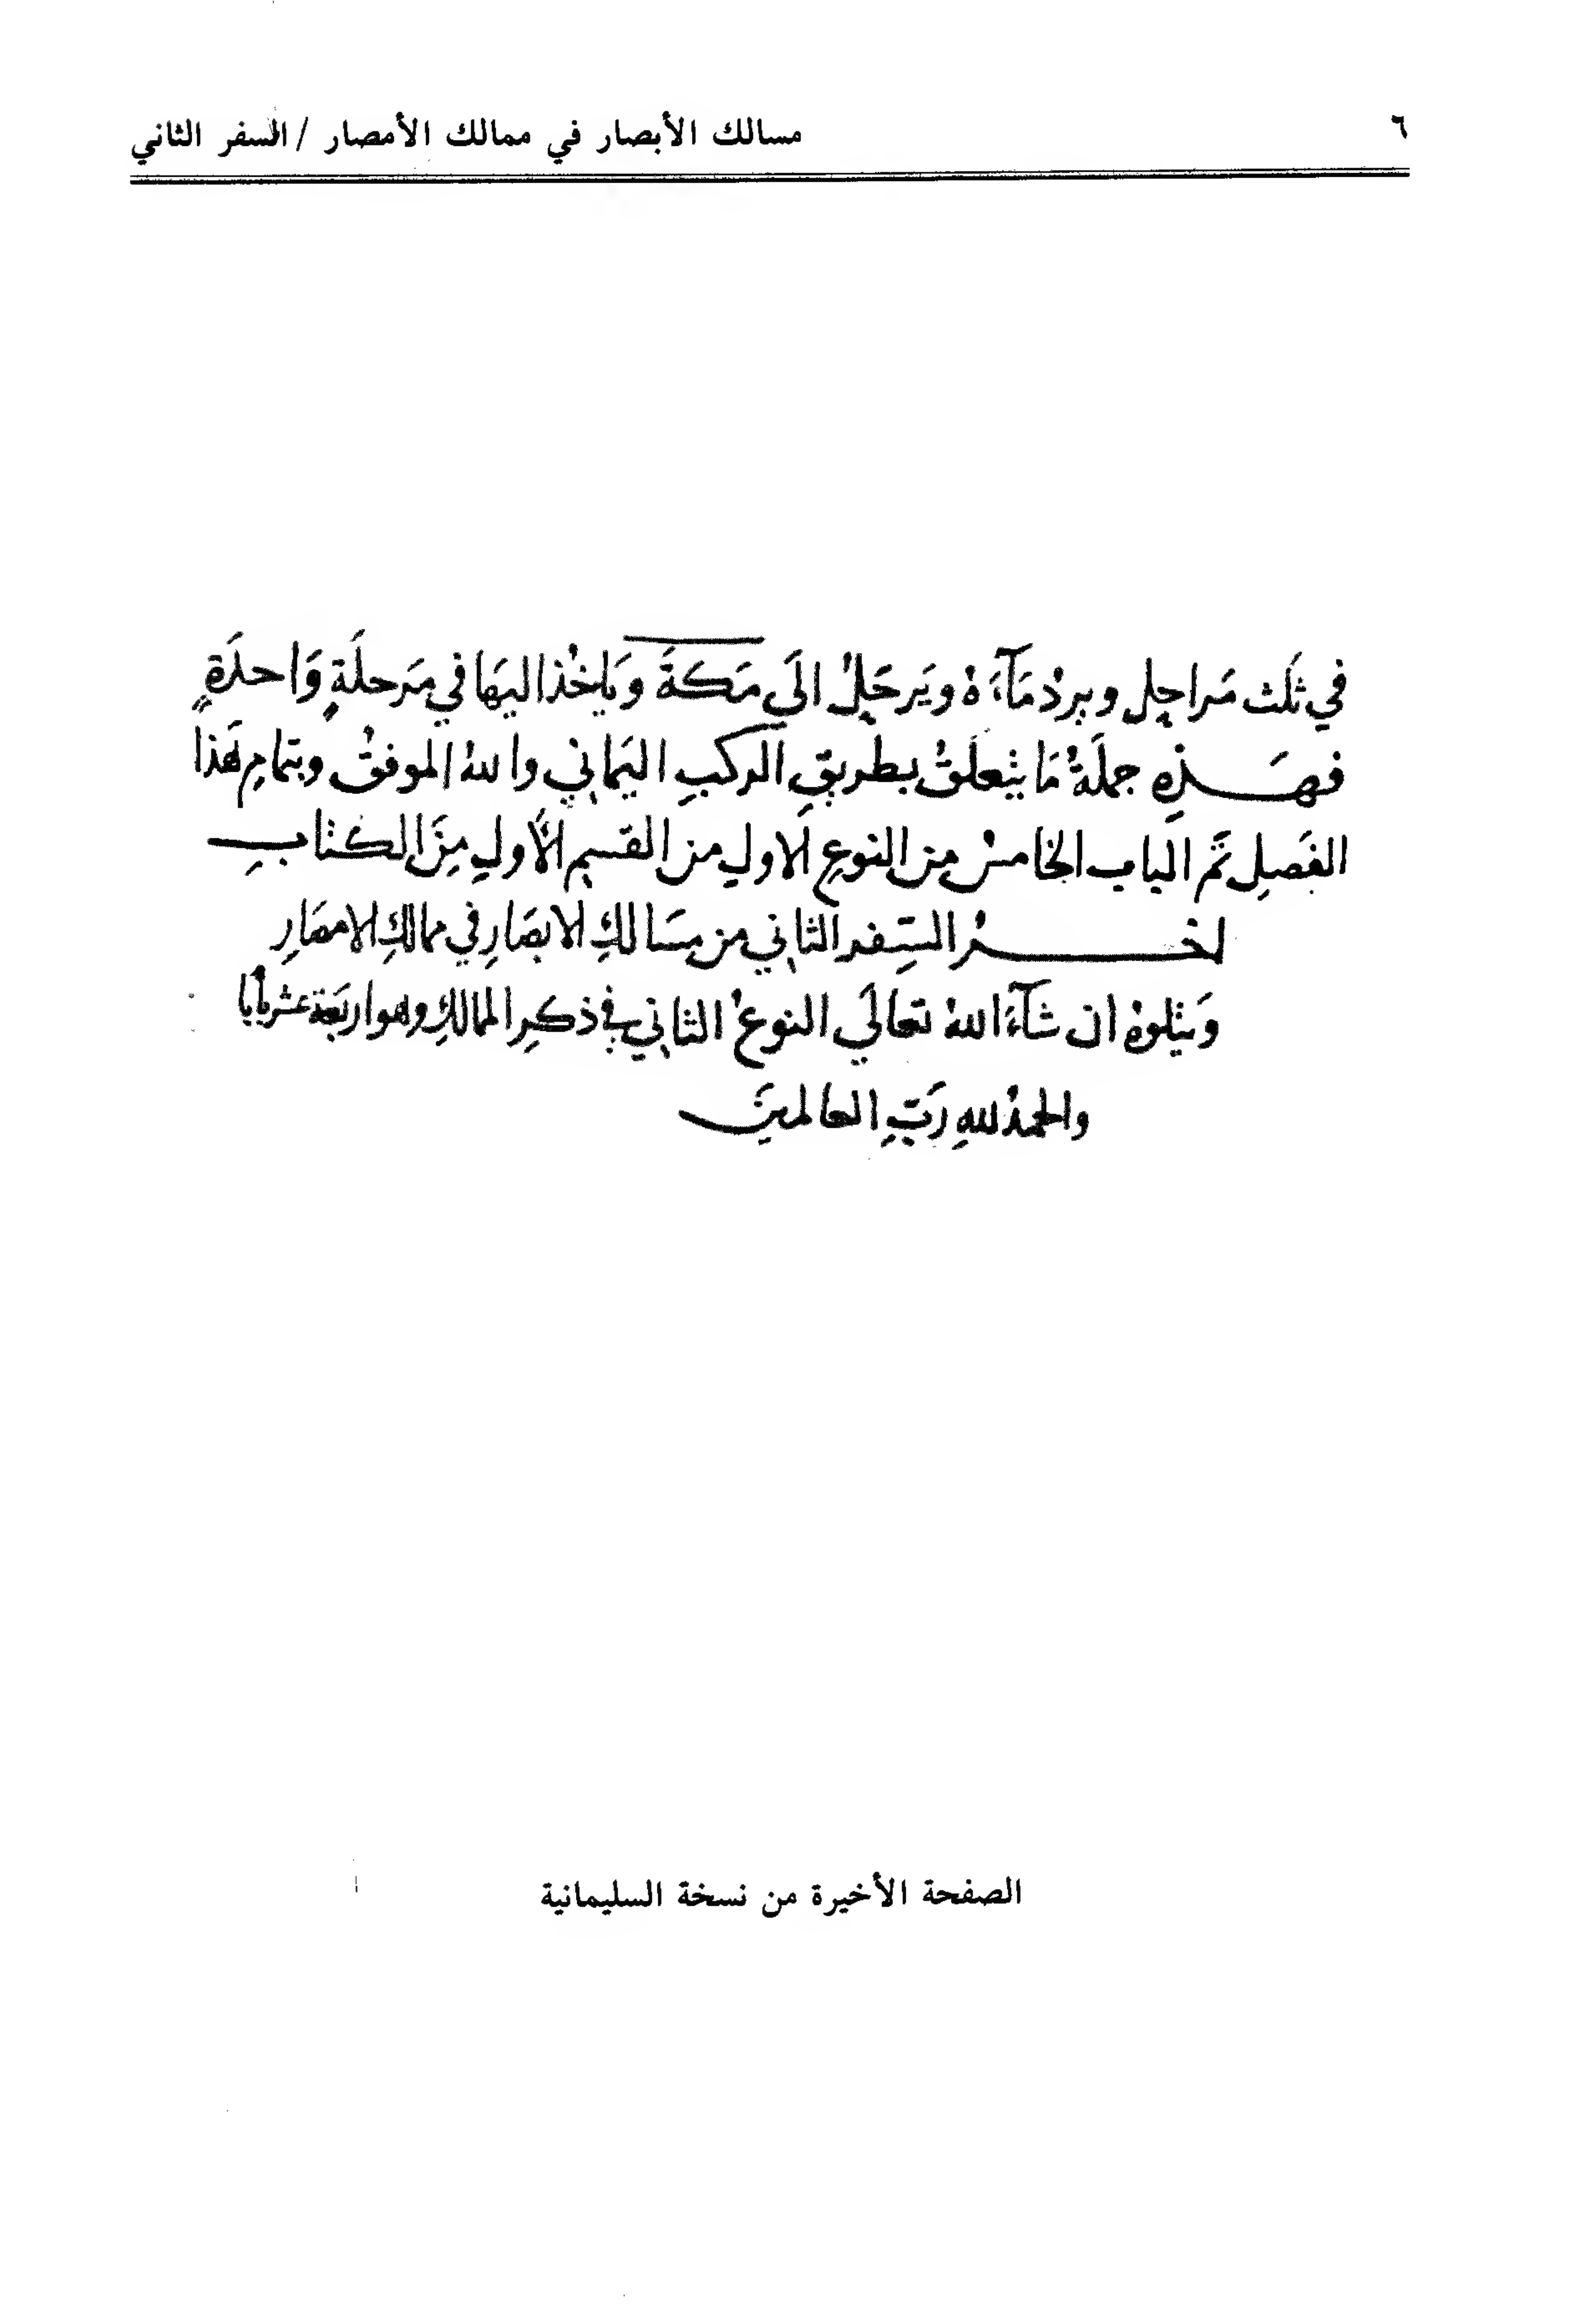 ٦
مسالك الأبصار في ممالك الأمصار / السفر الثاني
في ثلث مَراحِلٍ ويردُ مَآءَهُ ويَرحَلُ الَى مَكةَ وَياخُذ اليهَا في مَرحلَةٍ وَاحدَةٍ
فهَذِهِ جملَةُ مَا يتعلَقُ بطريقِ الركبِ اليَماني واللهُ الموفقُ وبتمامِ هَذا
الفَصلِ تَم الباب الخامسُ من النوعِ الاولِ من القسمِ الأولِ مِنَ الكتابِ
اخرُ السِّفر الثاني من مسَالكِ الابصَارِ في ممالكِ الامصَارِ
وَيتلوهُ ان شآءَ اللهُ تعالَى النوعُ الثاني في ذكرِ الممالكِ وهو اربَعَة عشر بابًا
والحمدُ للهِ رَبِّ العالمينَ
الصفحة الأخيرة من نسخة السليمانية